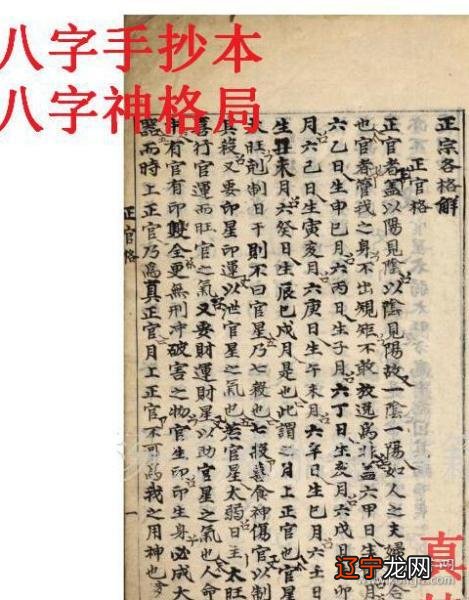 八字手抄本
八字神格局
正宗各格解
正官格
正官者盖以陽見陰以陰見陽故一陰一陽如人之夫婦
也官者管我之身不出規矩不敢放逸為非盖六甲日生
六乙日生申巳月六丙日生子月六丁日生亥月六戊日生
月六己日生寅亥月六庚日生午未月六辛日生巳月六壬日
生丑未月六癸日生辰巳戌月是也此謂之月上正官也官星
太旺剋制日干則不曰官星乃七殺也七殺喜食神傷官以制
其殺又要印星印運以世官星之氣也若官星太弱日主太旺
喜行官運而旺官之氣又要財運財星以助官星之氣也人命
有官有印雙全更無刑冲破害之物官生印印生身必成大
器而時上正官乃為真正官月上正官不可為我之用神也
正官格
一
真
辽宁龙网